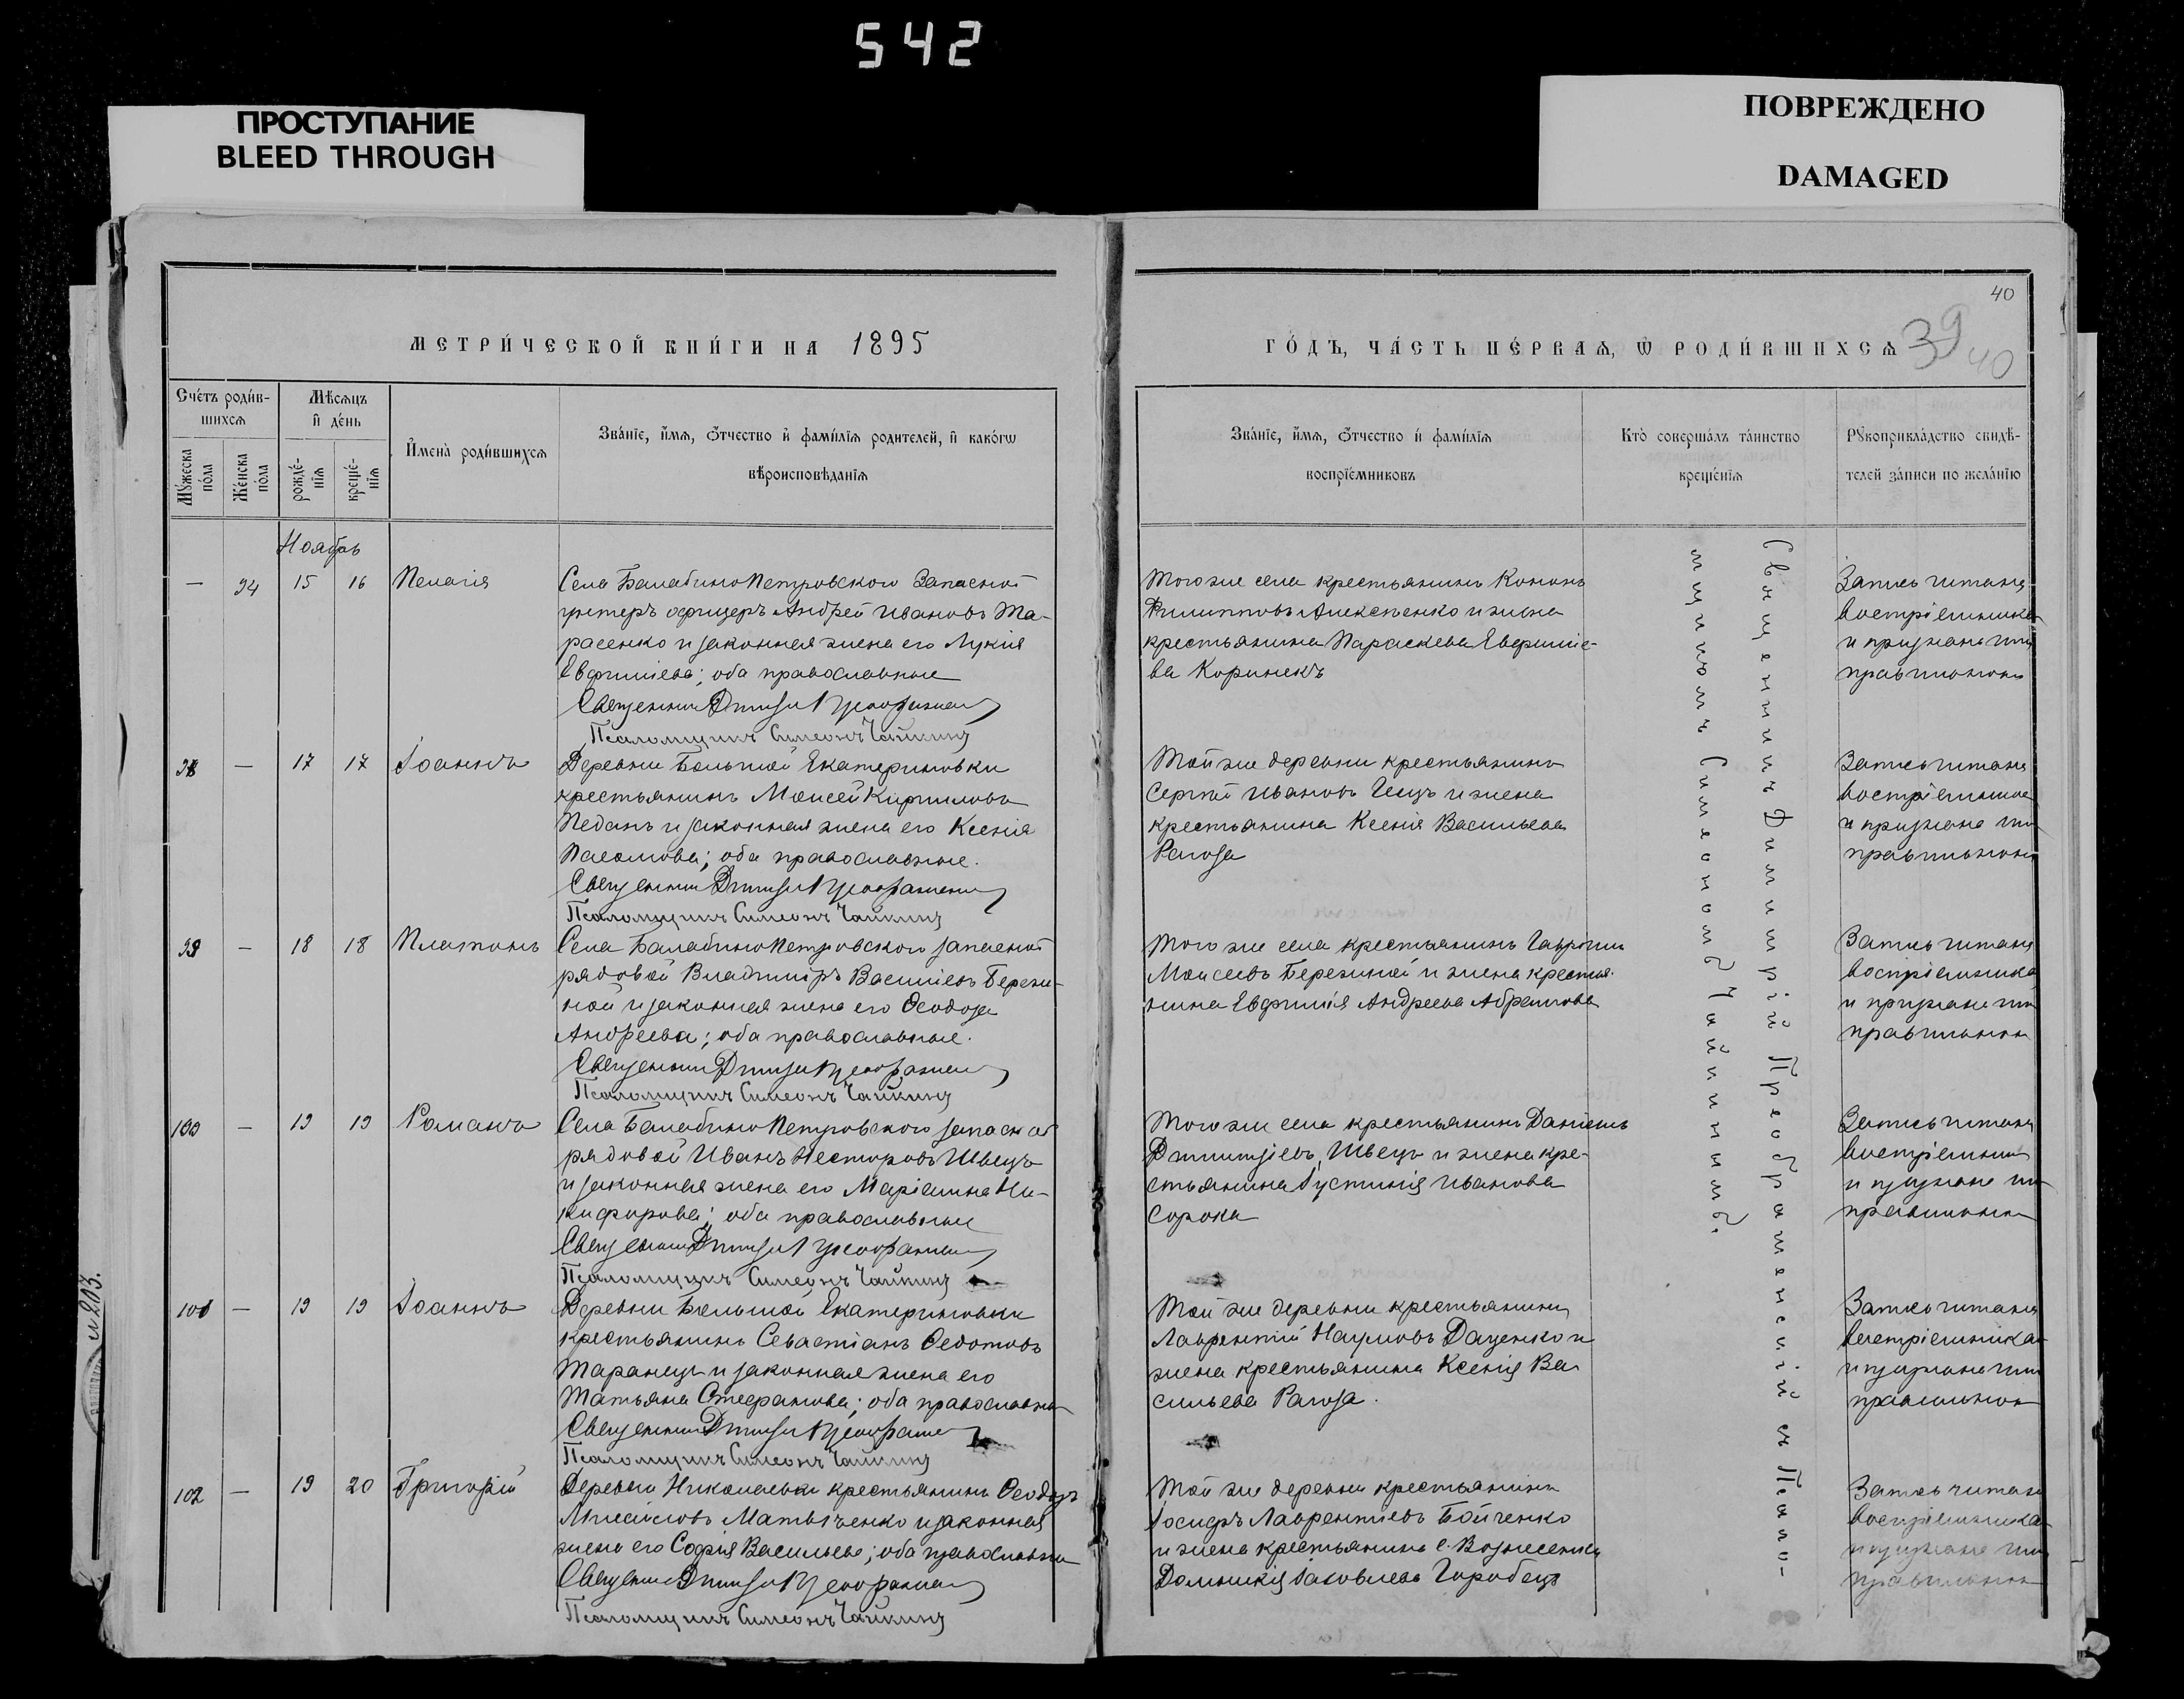 542
ПРОСТУПАНИЕ
BLEED THROUGH
ПОВРЕЖДЕНО
DAMAGED
40
МЕТРИ́ЧЕСКОЙ КНИ́ГИ НА 1895
ГО́ДЪ, ЧА́СТЬ ПЕ́РВАѦ, Ѡ҆ РОДИ́ВШИХСѦ
39
40
Сче́тъ роди́в-
шихсѧ
Мѣ́сѧцъ
и҆ де́нь
Мꙋ́жеска
по́ла
Же́нска
по́ла
рожде́-
нїѧ
креще́-
нїѧ
И҆мена̀ роди́вшихсѧ
Зва́нїе, и҆́мѧ, ѻ҆́тчество и҆ фами́лїѧ родителей, и҆ како́гѡ
вѣроисповѣ́данїѧ
Зва́нїе, и҆́мѧ, ѻ҆́тчество и҆ фами́лїѧ
воспрїе́мниковъ
Кто̀ соверша́лъ та́инство
креще́нїѧ
Рꙋкоприкла́дство свидѣ́-
телей за́писи по жела́нїю
Ноябрь
— 94 15 16 Пелагія
Села БалабиноПетровского Запасной
унтеръ офицеръ Андрей Ивановъ Та-
расенко и законная жена его Лукія
Евфиміева; оба православные
Священник Димитрій Преображенск
Псаломщикъ Симеонъ Чайкинъ
Того же села крестьянинъ Кононъ
Филипповъ Алексѣенко и жена
крестьянина Параскева Евфиміе-
ва Коринекъ
Запись читана
воспріемника
и признана ими
правильною
98 — 17 17 Іоаннъ
Деревни Большой Екатериновки
крестьянинъ Моисей Кирилловъ
Педанъ и законная жена его Ксенія
оба православные.
Священник Димитрій Преображенск
Псаломщикъ Симеонъ Чайкинъ
Той же деревни крестьянинъ
Сергій Ивановъ и жена
крестьянина Ксенія Васильева
Рагоза
Запись читана
воспріемника
и признана ими
правильною
99 — 18 18 Платонъ
Села БалабиноПетровского запасной
рядовой Владиміръ Василіевъ Бережи-
ной и законная жена его Ѳеодора
Андреева; оба православные.
Священник Димитрій Преображенск
Псаломщикъ Симеонъ Чайкинъ
Того же села крестьянинъ Гавріилъ
Моисеевъ Бережной и жена крестья-
нина Евфимія Андреева Абрамова
Запись читана
воспріемника
и признана ими
правильною
100 — 19 19 Романъ
Села БалабиноПетровского запасной
рядовой Иванъ Несторовъ Швецъ
и законная жена его Маріамна Ни-
кифорова; оба православные
Священник Димитрій Преображенск
Псаломщикъ Симеонъ Чайкинъ
Того же села крестьянинъ Даніилъ
Димитріевъ Швецъ и жена кре-
стьянина Іустинія Иванова
Сорока
Запись читана
воспріемника
и признана ими
правильною
101 — 19 19 Іоаннъ
Деревни Большой Екатериновки
крестьянинъ Севастіанъ Ѳедотовъ
Таранецъ и законная жена его
Татьяна Стефанова; оба православны
Священник Димитрій Преображенск
Псаломщикъ Симеонъ Чайкинъ
Той же деревни крестьянинъ
Лаврентій Наумовъ Даценко и
жена крестьянина Ксенія Ва-
сильева Рагоза.
Запись читана
воспріемника
и признана ими
правильною
102 — 19 20 Григорій
Деревни Николаевки крестьянинъ Ѳеодоръ
Михаиловъ Матвѣенко и законная
жена его Софія Васильева; оба православны
Священник Димитрій Преображенск
Псаломщикъ Симеонъ Чайкинъ
Той же деревни крестьянинъ
Іосифъ Лаврентіевъ Бойченко
и жена крестьянина с. Вознесенки
Домникія Іаковлева Горобецъ
Запись читана
воспріемника
и признана ими
правильною
Священникъ Димитрій Преображенскій съ Псало-
мщикомъ Симеономъ Чайкинымъ.
л 203.